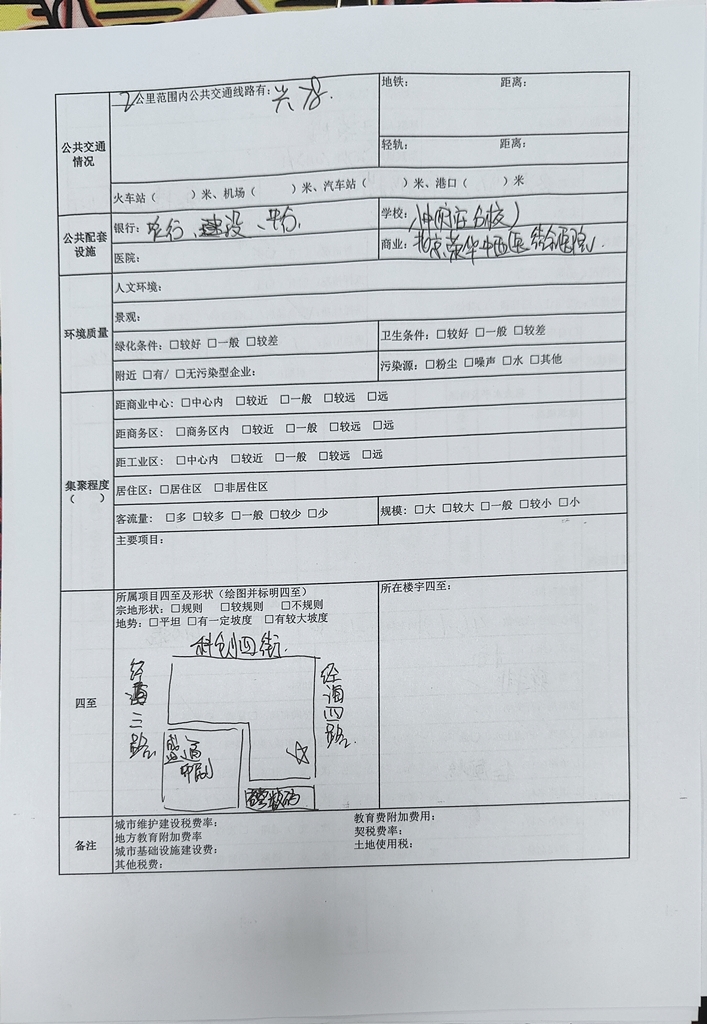 公共交通情况
2公里范围内公共交通线路有：兴78.
地铁： 距离：
轻轨： 距离：
火车站（ ）米、机场（ ）米、汽车站（ ）米、港口（ ）米
公共配套设施
银行： 建设、
学校：
医院：
商业：北京荣华中西医结合医院.
环境质量
人文环境：
景观：
绿化条件：□较好 □一般 □较差
卫生条件：□较好 □一般 □较差
附近 □有/ □无污染型企业：
污染源：□粉尘 □噪声 □水 □其他
集聚程度（ ）
距商业中心：□中心内 □较近 □一般 □较远 □远
距商务区： □商务区内 □较近 □一般 □较远 □远
距工业区： □中心内 □较近 □一般 □较远 □远
居住区：□居住区 □非居住区
客流量： □多 □较多 □一般 □较少 □少
规模：□大 □较大 □一般 □较小 □小
主要项目：
四至
所属项目四至及形状（绘图并标明四至）
宗地形状：□规则 □较规则 □不规则
地势：□平坦 □有一定坡度 □有较大坡度
所在楼宇四至：
科创四街.
经海三路
经海四路
盛通印刷
数码
备注
城市维护建设税费率：
教育费附加费用：
地方教育附加费率
契税费率：
城市基础设施建设费：
土地使用税：
其他税费：